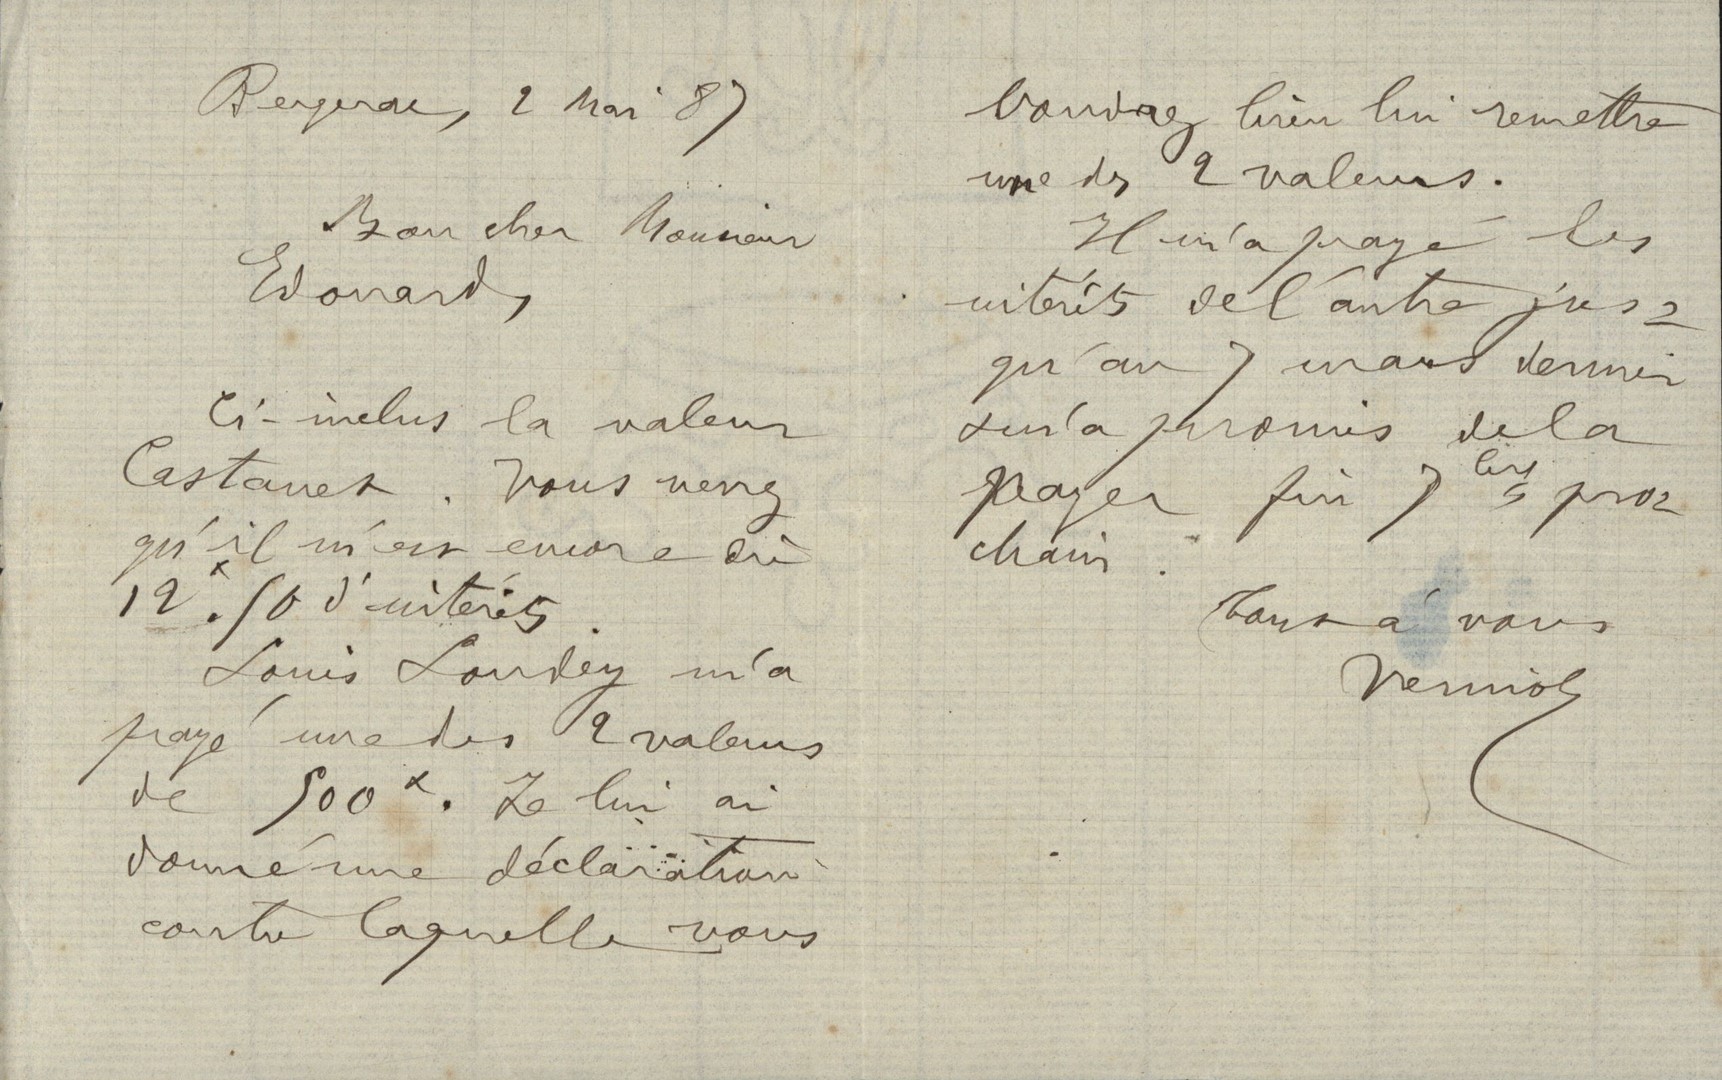 Bergerac, 2 Mai 87
Bon cher Monsieur
Edouard,
Ci-inclus la valeur
Castanet. Vous verrez
qu'il m'est encore dû
12f.50 d'intérêts.
Louis Lourdey m'a
payé une des 2 valeurs
de 500f. Je lui ai
donné une déclaration
contre laquelle vous
voudrez bien lui remettre
une des 2 valeurs.
Il m'a payé les
intérêts de l'autre jus=
qu'au 7 mars dernier
& m'a promis de la
payer fin 7bre pro=
chain.
Tout à vous